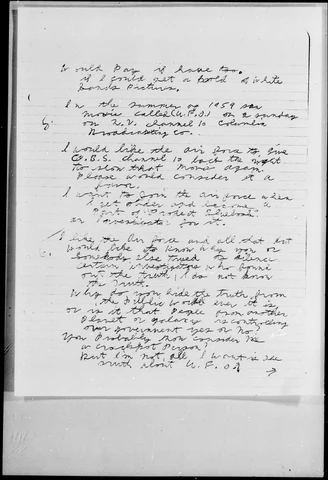 Would Pay if have too.
if I could get a hold of White
Sands Picture.
In the summer of 1959 saw
movie called (U.F.O.) on a sunday
on T.V. channel 10 Columbia
Broadcasting Co.
I would like the air force to give
C.B.S. channel 10 back the right
to show that movie again.
Please would consider it a
favor.
I want to join the air force when
I get older and become a
Part of Project Bluebook
an investigator for it.
I like the Air force and all that but
Would like to know why you or
Somebody else tryed to silence
certain investigators who found
out the truth, I do not know
the truth.
Why do you hide the truth from
the Public Worth ever it is
or is it that People from another
Planet or galaxy is contacting
our government yes or no?
You Probably now consider me
a crackpot Person?
But I'm not, all I want is see
truth about U.F.O.s